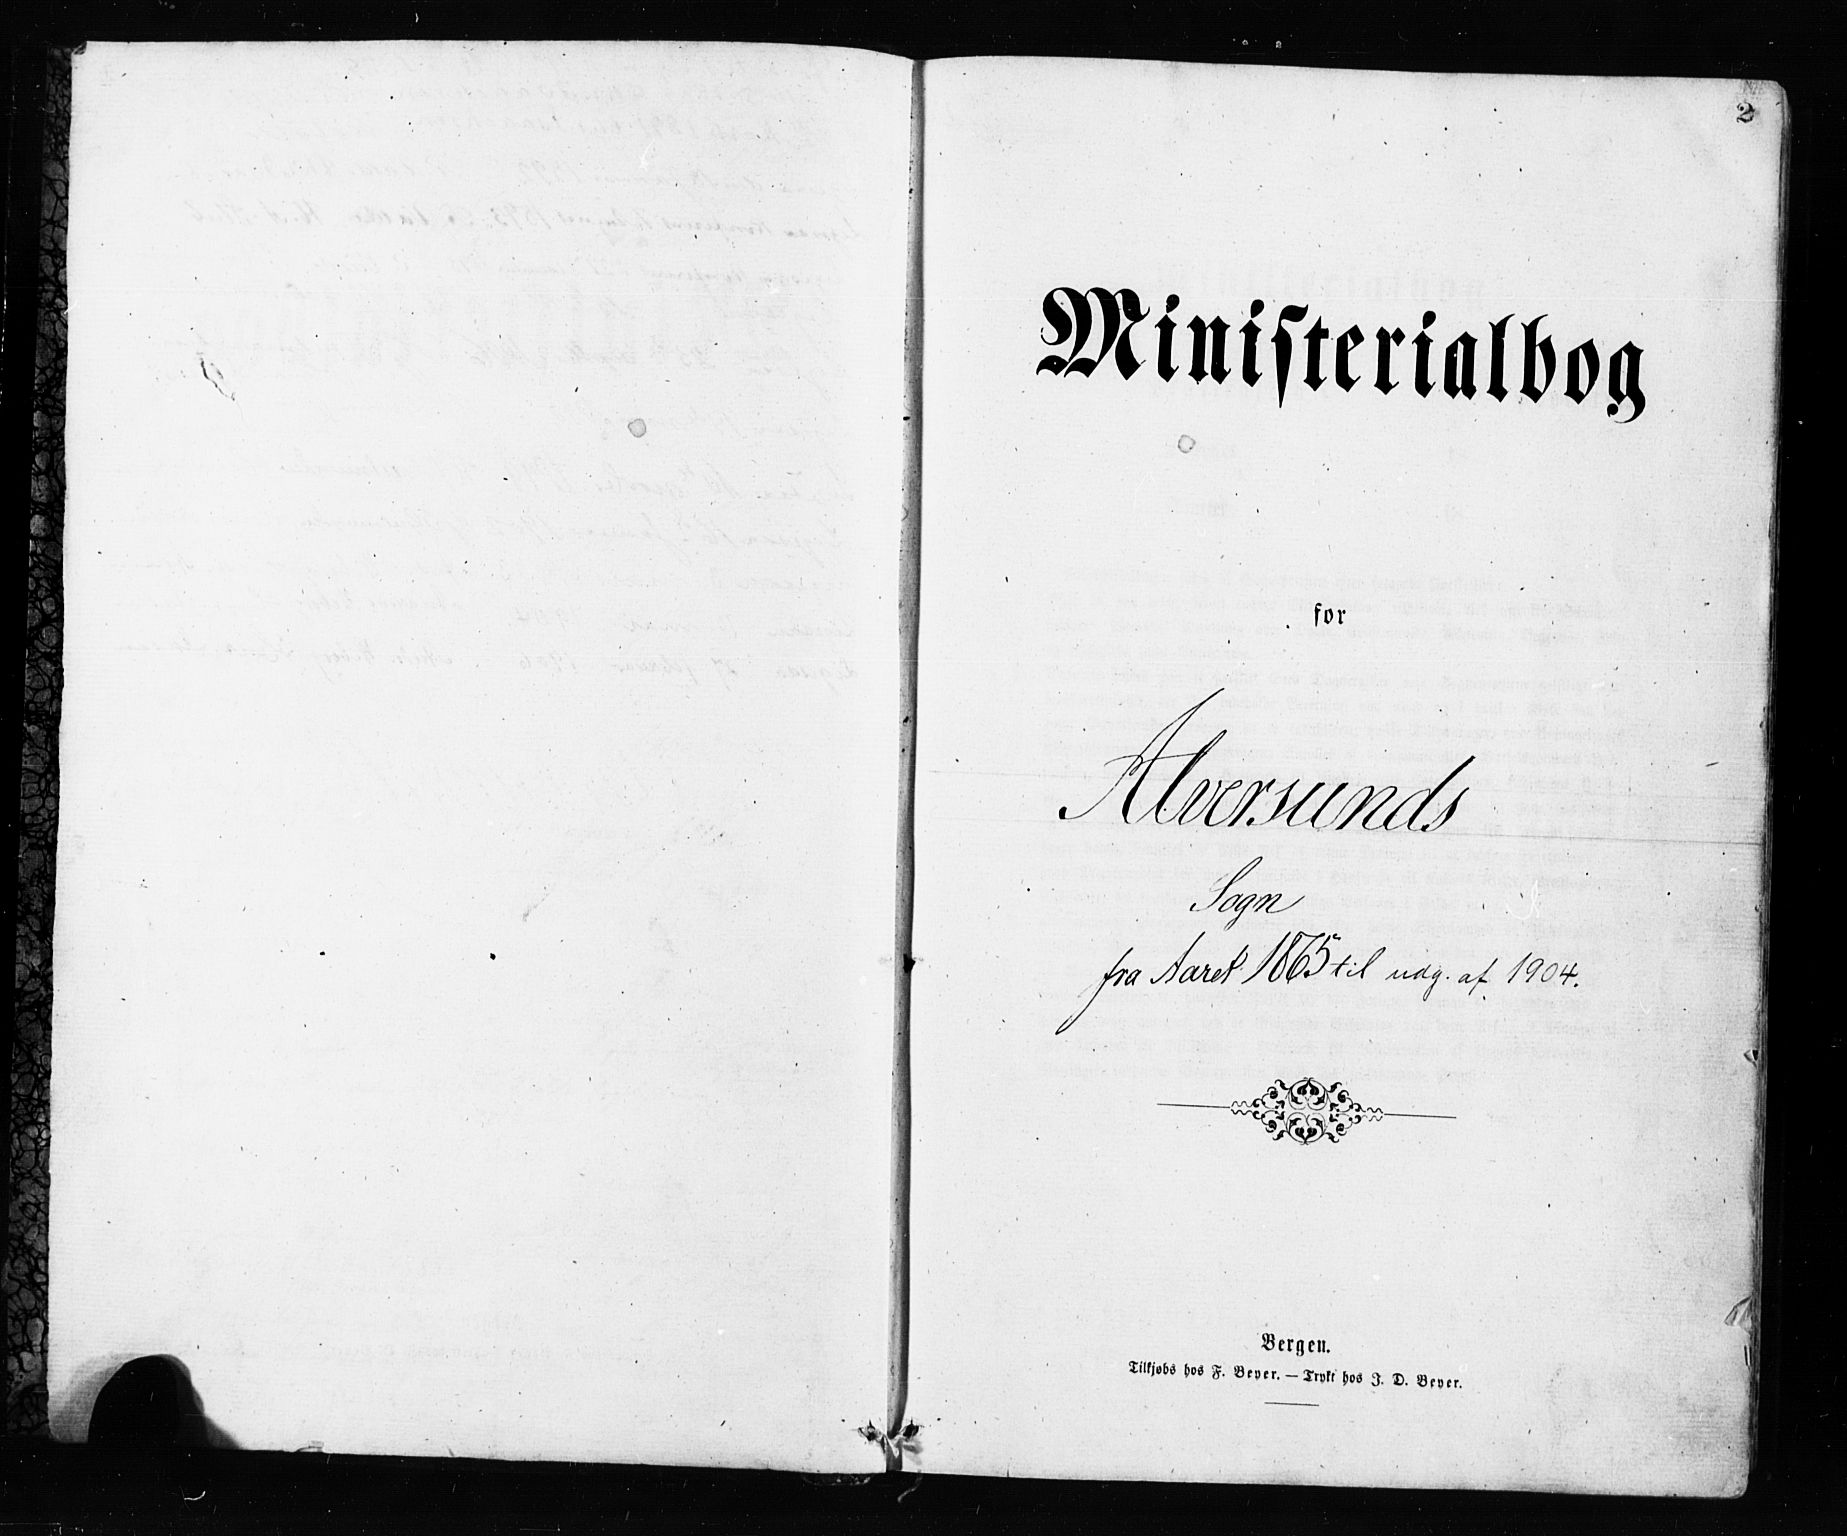 2
Ministerialbog
for
Alversunds
Sogn
fra Aaret 1865 til udg. af 1904.
Bergen.
Tilkjøbs hos F. Beyer. — Trykt hos J. D. Beyer.